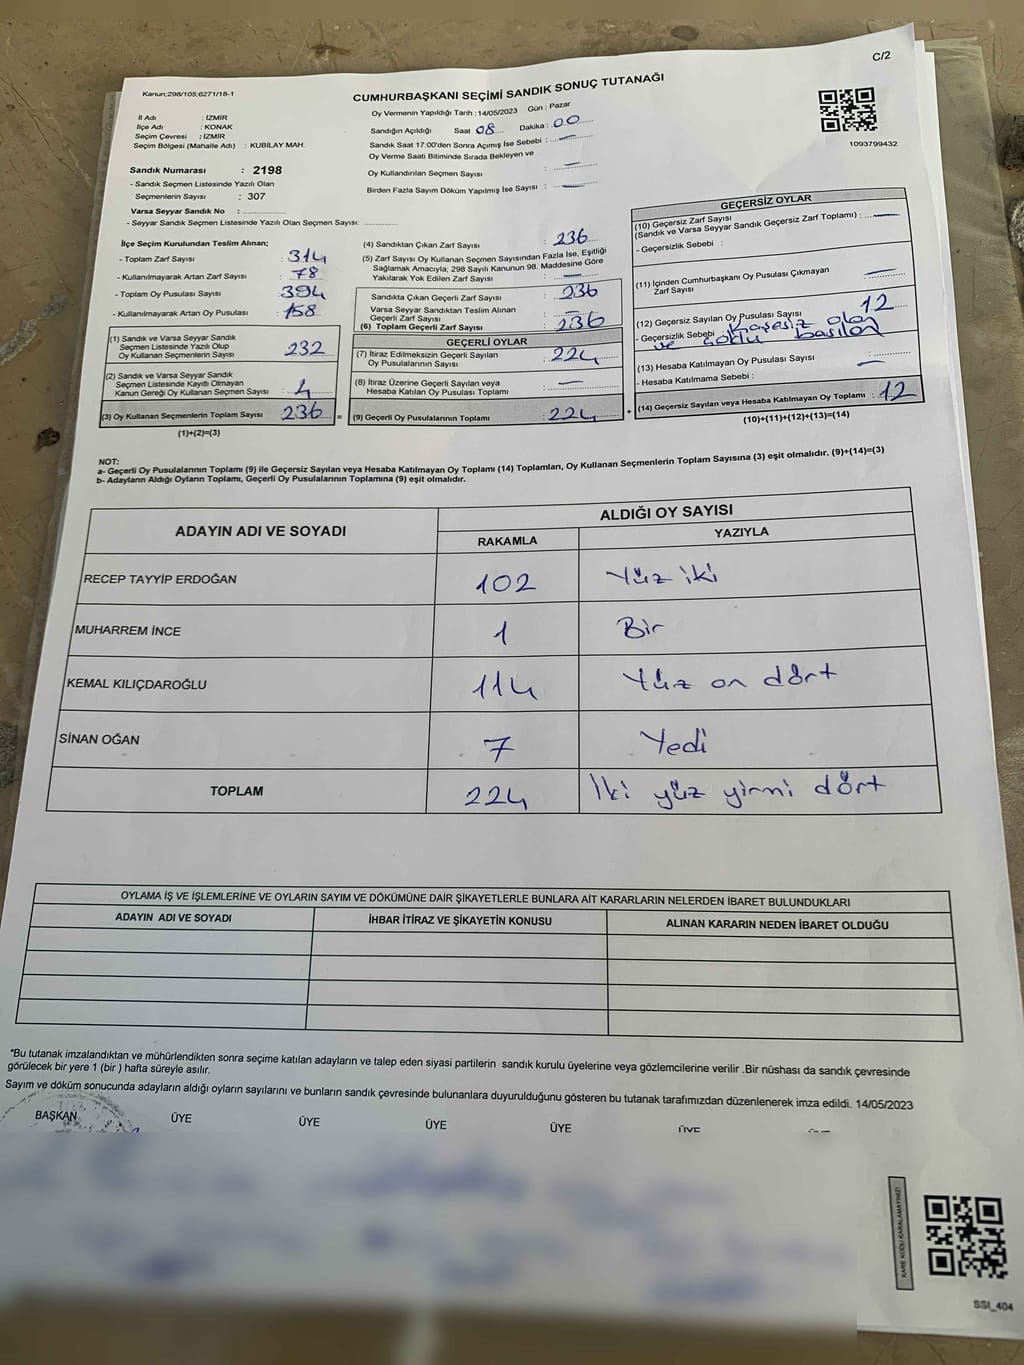 C/2
Kanun:298/105;6271/18-1
CUMHURBAŞKANI SEÇİMİ SANDIK SONUÇ TUTANAĞI
İl Adı : İZMİR
İlçe Adı : KONAK
Seçim Çevresi : İZMİR
Seçim Bölgesi (Mahalle Adı) : KUBİLAY MAH.
Sandık Numarası : 2198
- Sandık Seçmen Listesinde Yazılı Olan
Seçmenlerin Sayısı : 307
Varsa Seyyar Sandık No :
- Seyyar Sandık Seçmen Listesinde Yazılı Olan Seçmen Sayısı:
Oy Vermenin Yapıldığı Tarih : 14/05/2023 Gün : Pazar
Sandığın Açıldığı Saat 08 Dakika : 00
Sandık Saat 17:00'den Sonra Açımış İse Sebebi : —
Oy Verme Saati Bitiminde Sırada Bekleyen ve
Oy Kullandırılan Seçmen Sayısı : —
Birden Fazla Sayım Döküm Yapılmış İse Sayısı : —
1093799432
İlçe Seçim Kurulundan Teslim Alınan;
- Toplam Zarf Sayısı : 314
- Kullanılmayarak Artan Zarf Sayısı : 78
- Toplam Oy Pusulası Sayısı : 394
- Kullanılmayarak Artan Oy Pusulası : 158
(1) Sandık ve Varsa Seyyar Sandık
Seçmen Listesinde Yazılı Olup
Oy Kullanan Seçmenlerin Sayısı 232
(2) Sandık ve Varsa Seyyar Sandık
Seçmen Listesinde Kayıtlı Olmayan
Kanun Gereği Oy Kullanan Seçmen Sayısı : 4
(3) Oy Kullanan Seçmenlerin Toplam Sayısı 236 =
(1)+(2)=(3)
(4) Sandıktan Çıkan Zarf Sayısı : 236
(5) Zarf Sayısı Oy Kullanan Seçmen Sayısından Fazla İse, Eşitliği
Sağlamak Amacıyla; 298 Sayılı Kanunun 98. Maddesine Göre
Yakılarak Yok Edilen Zarf Sayısı : —
Sandıkta Çıkan Geçerli Zarf Sayısı : 236
Varsa Seyyar Sandıktan Teslim Alınan
Geçerli Zarf Sayısı : —
(6) Toplam Geçerli Zarf Sayısı : 236
GEÇERLİ OYLAR
(7) İtiraz Edilmeksizin Geçerli Sayılan
Oy Pusulasının Sayısı : 224
(8) İtiraz Üzerine Geçerli Sayılan veya
Hesaba Katılan Oy Pusulası Toplamı : —
(9) Geçerli Oy Pusulalarının Toplamı : 224 +
GEÇERSİZ OYLAR
(10) Geçersiz Zarf Sayısı
(Sandık ve Varsa Seyyar Sandık Geçersiz Zarf Toplamı) : —
- Geçersizlik Sebebi :
(11) İçinden Cumhurbaşkanı Oy Pusulası Çıkmayan
Zarf Sayısı —
(12) Geçersiz Sayılan Oy Pusulası Sayısı 12
- Geçersizlik Sebebi : Kaşesiz olan
ve çoklu basılan
(13) Hesaba Katılmayan Oy Pusulası Sayısı : —
- Hesaba Katılmama Sebebi :
(14) Geçersiz Sayılan veya Hesaba Katılmayan Oy Toplamı : 12
(10)+(11)+(12)+(13)=(14)
NOT:
a- Geçerli Oy Pusulalarının Toplamı (9) ile Geçersiz Sayılan veya Hesaba Katılmayan Oy Toplamı (14) Toplamları, Oy Kullanan Seçmenlerin Toplam Sayısına (3) eşit olmalıdır. (9)+(14)=(3)
b- Adayların Aldığı Oyların Toplamı, Geçerli Oy Pusulalarının Toplamına (9) eşit olmalıdır.
ADAYIN ADI VE SOYADI
ALDIĞI OY SAYISI
RAKAMLA YAZIYLA
RECEP TAYYİP ERDOĞAN 102 Yüz iki
MUHARREM İNCE 1 Bir
KEMAL KILIÇDAROĞLU 114 Yüz on dört
SİNAN OĞAN 7 Yedi
TOPLAM 224 İki yüz yirmi dört
OYLAMA İŞ VE İŞLEMLERİNE VE OYLARIN SAYIM VE DÖKÜMÜNE DAİR ŞİKAYETLERLE BUNLARA AİT KARARLARIN NELERDEN İBARET BULUNDUKLARI
ADAYIN ADI VE SOYADI İHBAR İTİRAZ VE ŞİKAYETİN KONUSU ALINAN KARARIN NEDEN İBARET OLDUĞU
*Bu tutanak imzalandıktan ve mühürlendikten sonra seçime katılan adayların ve talep eden siyasi partilerin sandık kurulu üyelerine veya gözlemcilerine verilir .Bir nüshası da sandık çevresinde
görülecek bir yere 1 (bir ) hafta süreyle asılır.
Sayım ve döküm sonucunda adayların aldığı oyların sayılarını ve bunların sandık çevresinde bulunanlara duyurulduğunu gösteren bu tutanak tarafımızdan düzenlenerek imza edildi. 14/05/2023
BAŞKAN ÜYE ÜYE ÜYE ÜYE ÜYE
KARE KODU KARALAMAYINIZ!
SSI_404